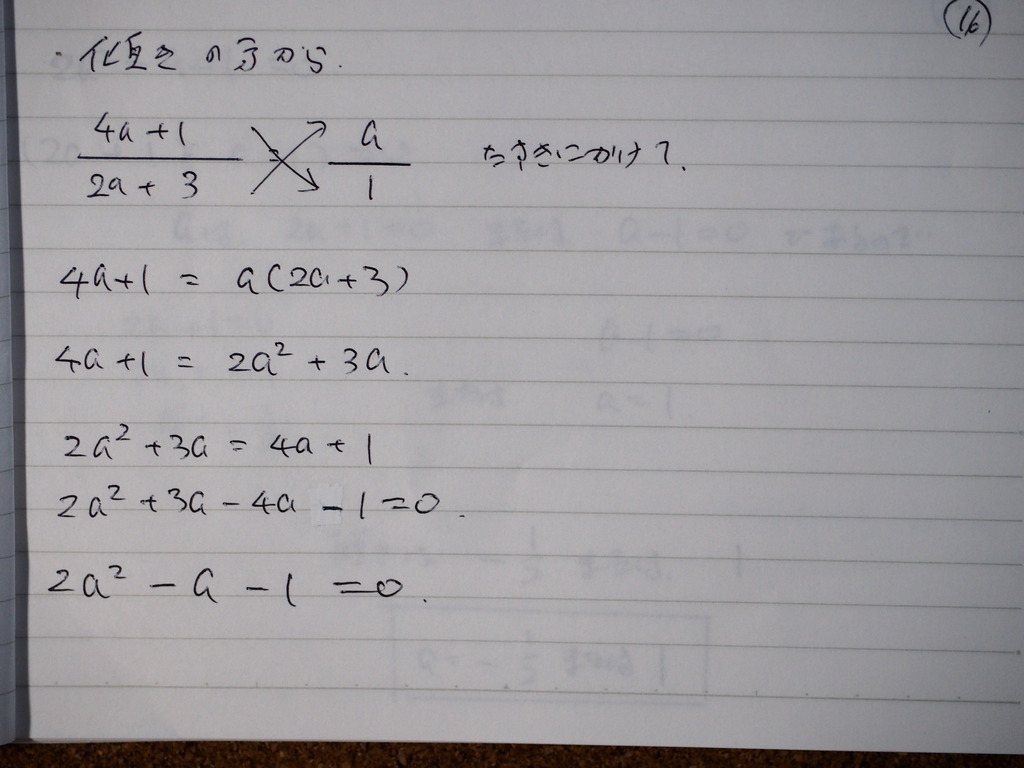 (16)
・仮定の言から.
4a+1 / 2a+3 = a / 1 たすきにかけて.
4a+1 = a(2a+3)
4a+1 = 2a² + 3a.
2a² +3a = 4a+1
2a² +3a - 4a - 1 =0.
2a² - a - 1 =0.